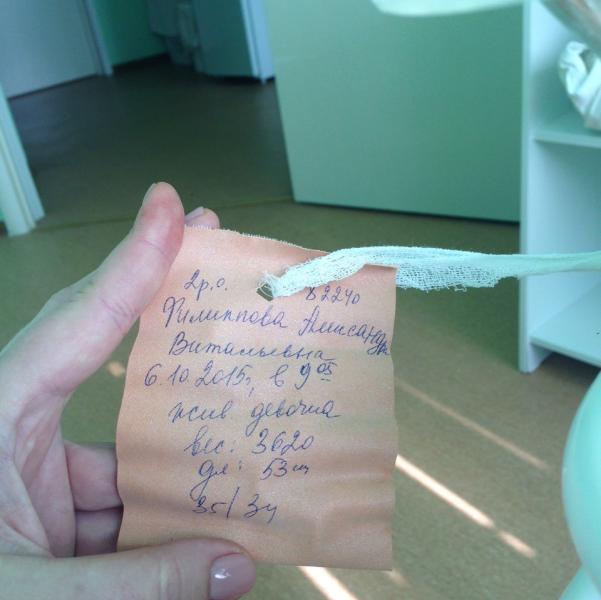 2р.о. 82240
Филиппова Александра
Витальевна
6.10.2015г, в 9 05
жив девочка
вес: 3620
дл: 53 см
35/34